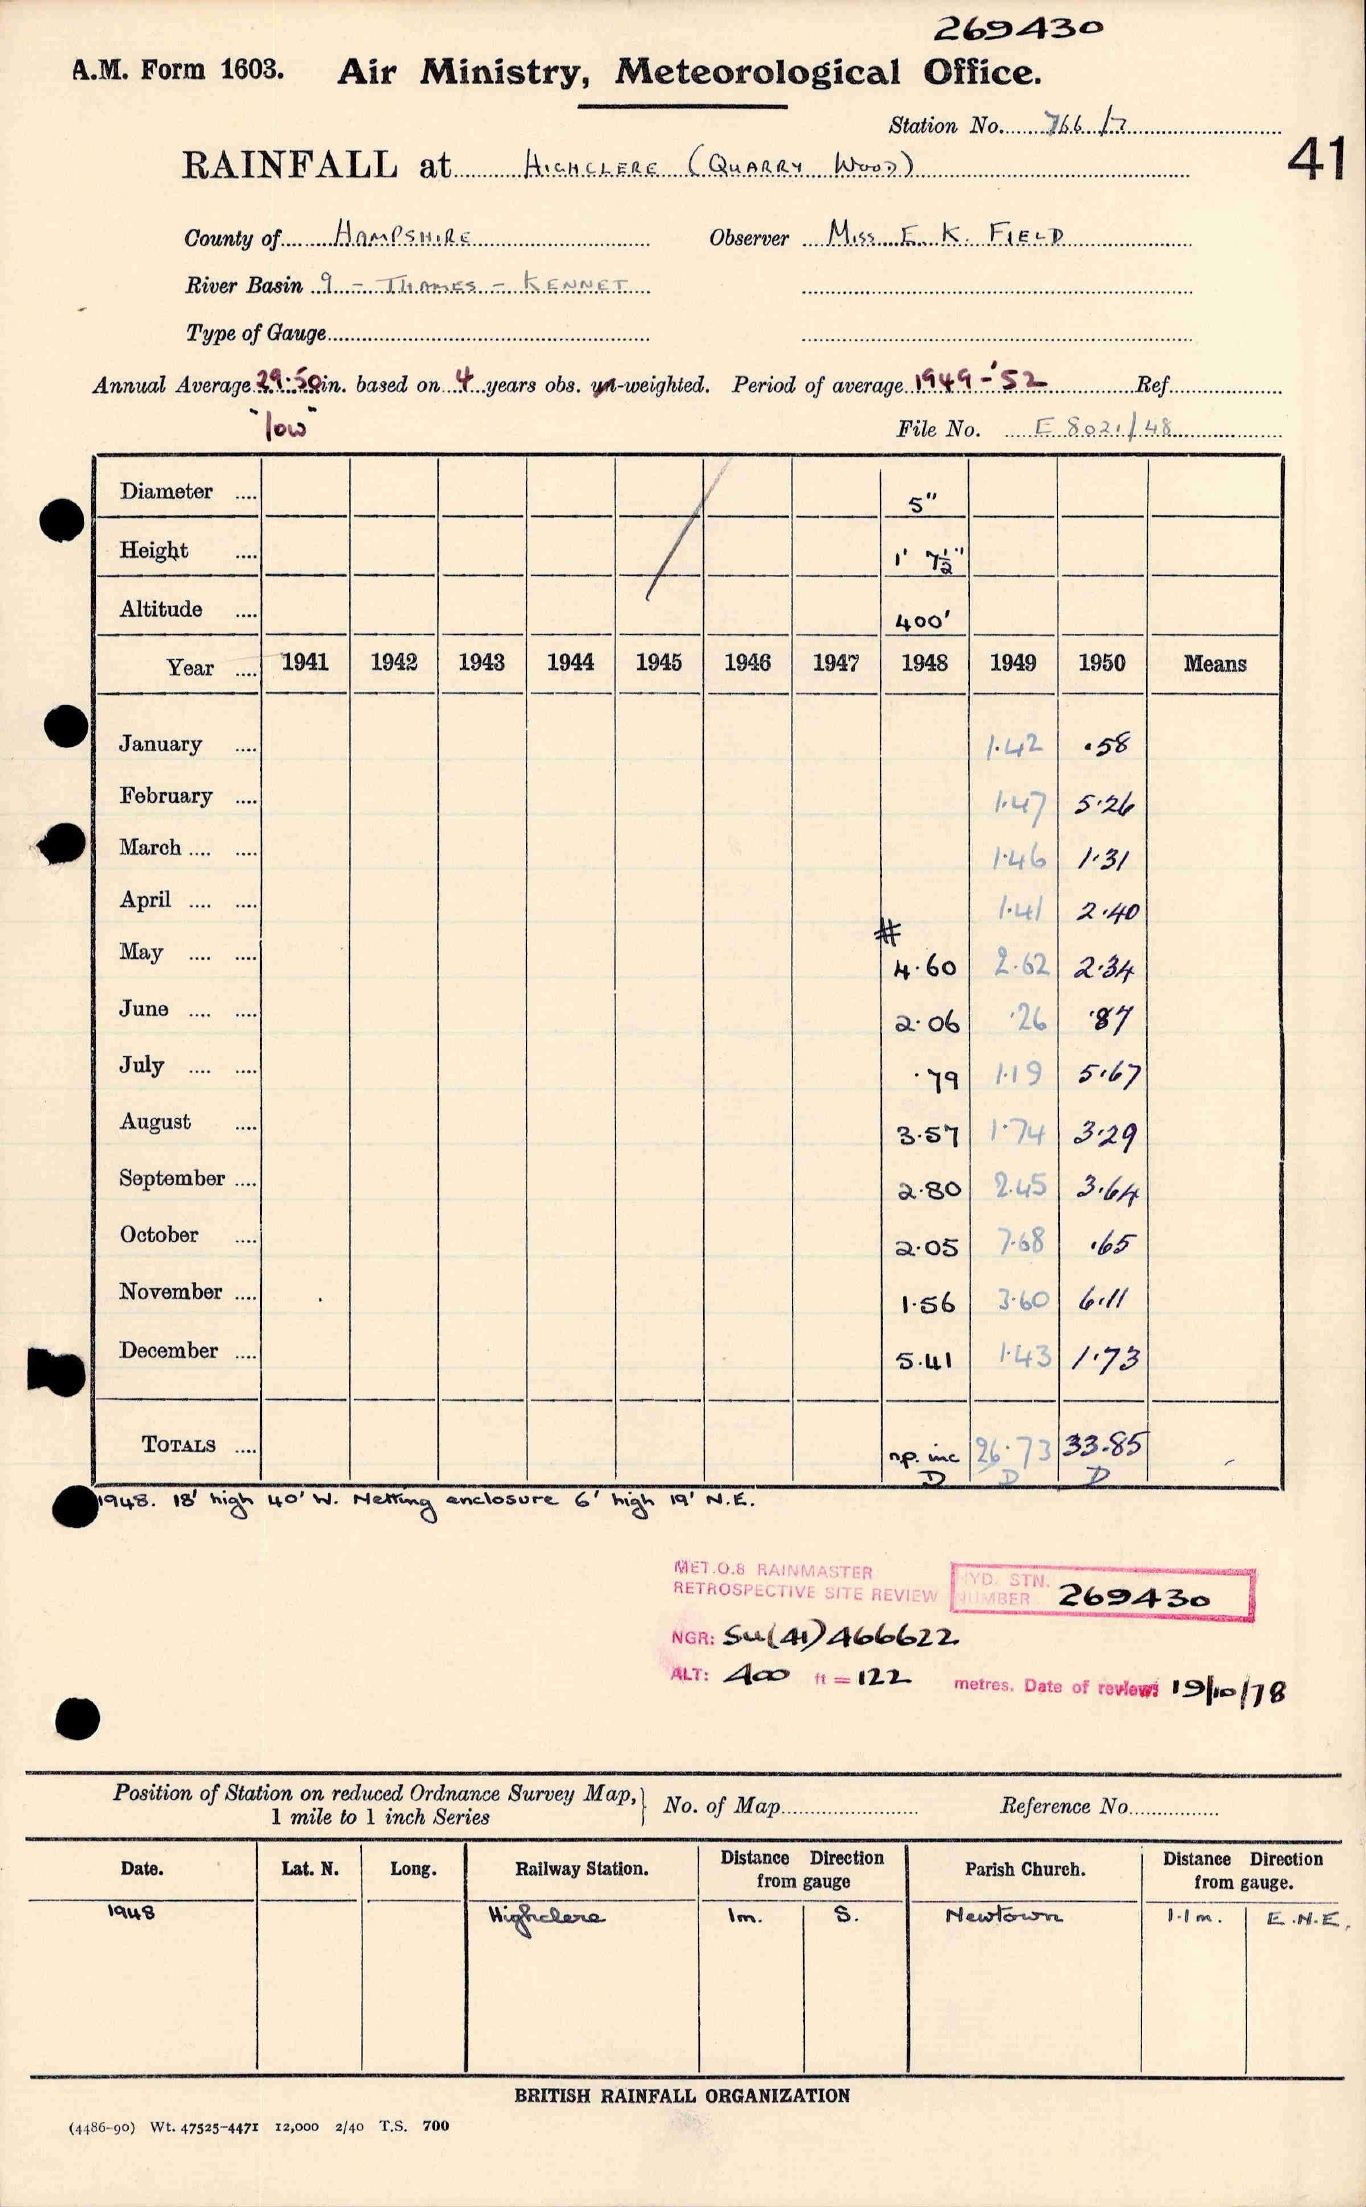 269430
A.M. Form 1603. Air Ministry, Meteorological Office.
Station No. 766/7
41
RAINFALL at HIGHCLERE (QUARRY WOOD)
County of HAMPSHIRE Observer MISS E. K. FIELD
River Basin 9 - THAMES - KENNET
Type of Gauge
Annual Average 29.50 in. based on 4 years obs. un-weighted. Period of average 1949-'52 Ref
"low"
File No. E 8021/48
Diameter .... 5"
Height .... 1' 7½"
Altitude .... 400'
Year .... 1941 1942 1943 1944 1945 1946 1947 1948 1949 1950 Means
January .... 1.42 .58
February .... 1.47 5.26
March .... .... 1.46 1.31
April .... .... 1.41 2.40
#
May .... .... 4.60 2.62 2.34
June .... .... 2.06 .26 .87
July .... .... .79 1.19 5.67
August .... 3.57 1.74 3.29
September .... 2.80 2.45 3.64
October .... 2.05 7.68 .65
November .... 1.56 3.60 6.11
December .... 5.41 1.43 1.73
TOTALS .... np. inc 26.73 33.85
D D D
1948. 18' high 40' W. Netting enclosure 6' high 19' N.E.
MET.O.8 RAINMASTER
RETROSPECTIVE SITE REVIEW
HYD. STN. NUMBER 269430
NGR: SU(41)466622
ALT: 400 ft = 122 metres. Date of review: 19/10/78
Position of Station on reduced Ordnance Survey Map, 1 mile to 1 inch Series } No. of Map Reference No.
Date. Lat. N. Long. Railway Station. Distance Direction from gauge Parish Church. Distance Direction from gauge.
1948 Highclere 1m. S. Newtown 1.1m. E.N.E.
BRITISH RAINFALL ORGANIZATION
(4486-90) Wt. 47525-4471 12,000 2/40 T.S. 700